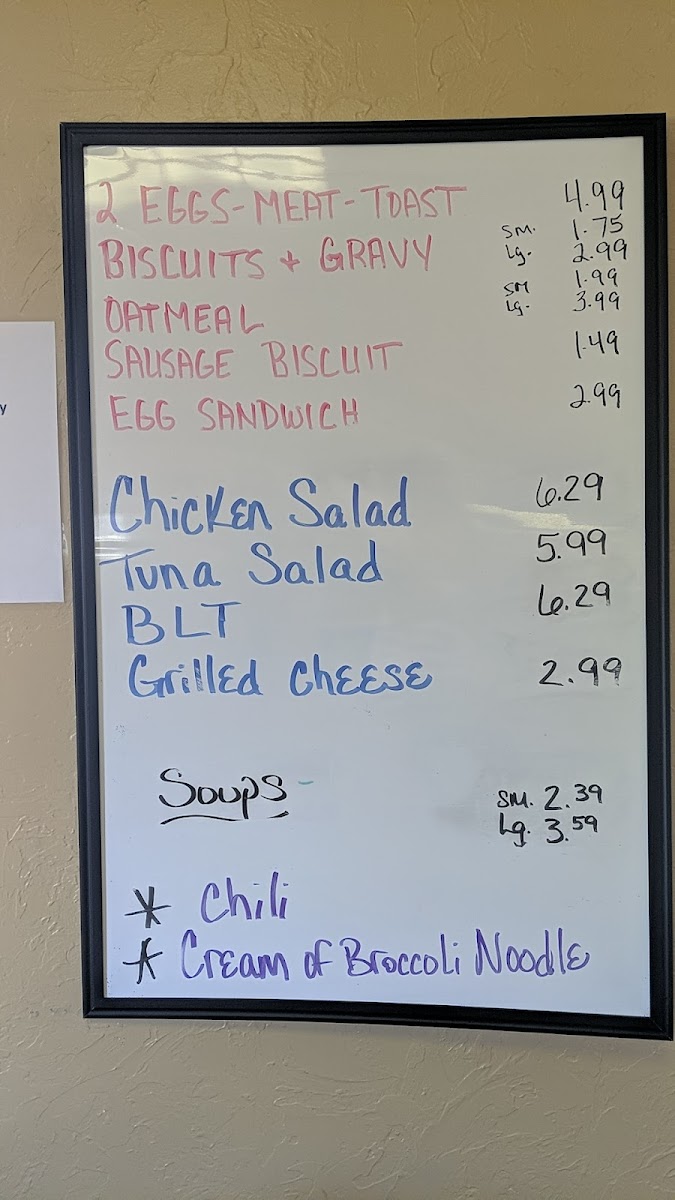 2 EGGS-MEAT-TOAST 4.99
BISCUITS + GRAVY SM. 1.75
Lg. 2.99
OATMEAL SM 1.99
Lg. 3.99
SAUSAGE BISCUIT 1.49
EGG SANDWICH 2.99
Chicken Salad 6.29
Tuna Salad 5.99
BLT 6.29
Grilled Cheese 2.99
Soups - SM. 2.39
Lg. 3.59
* Chili
* Cream of Broccoli Noodle
y